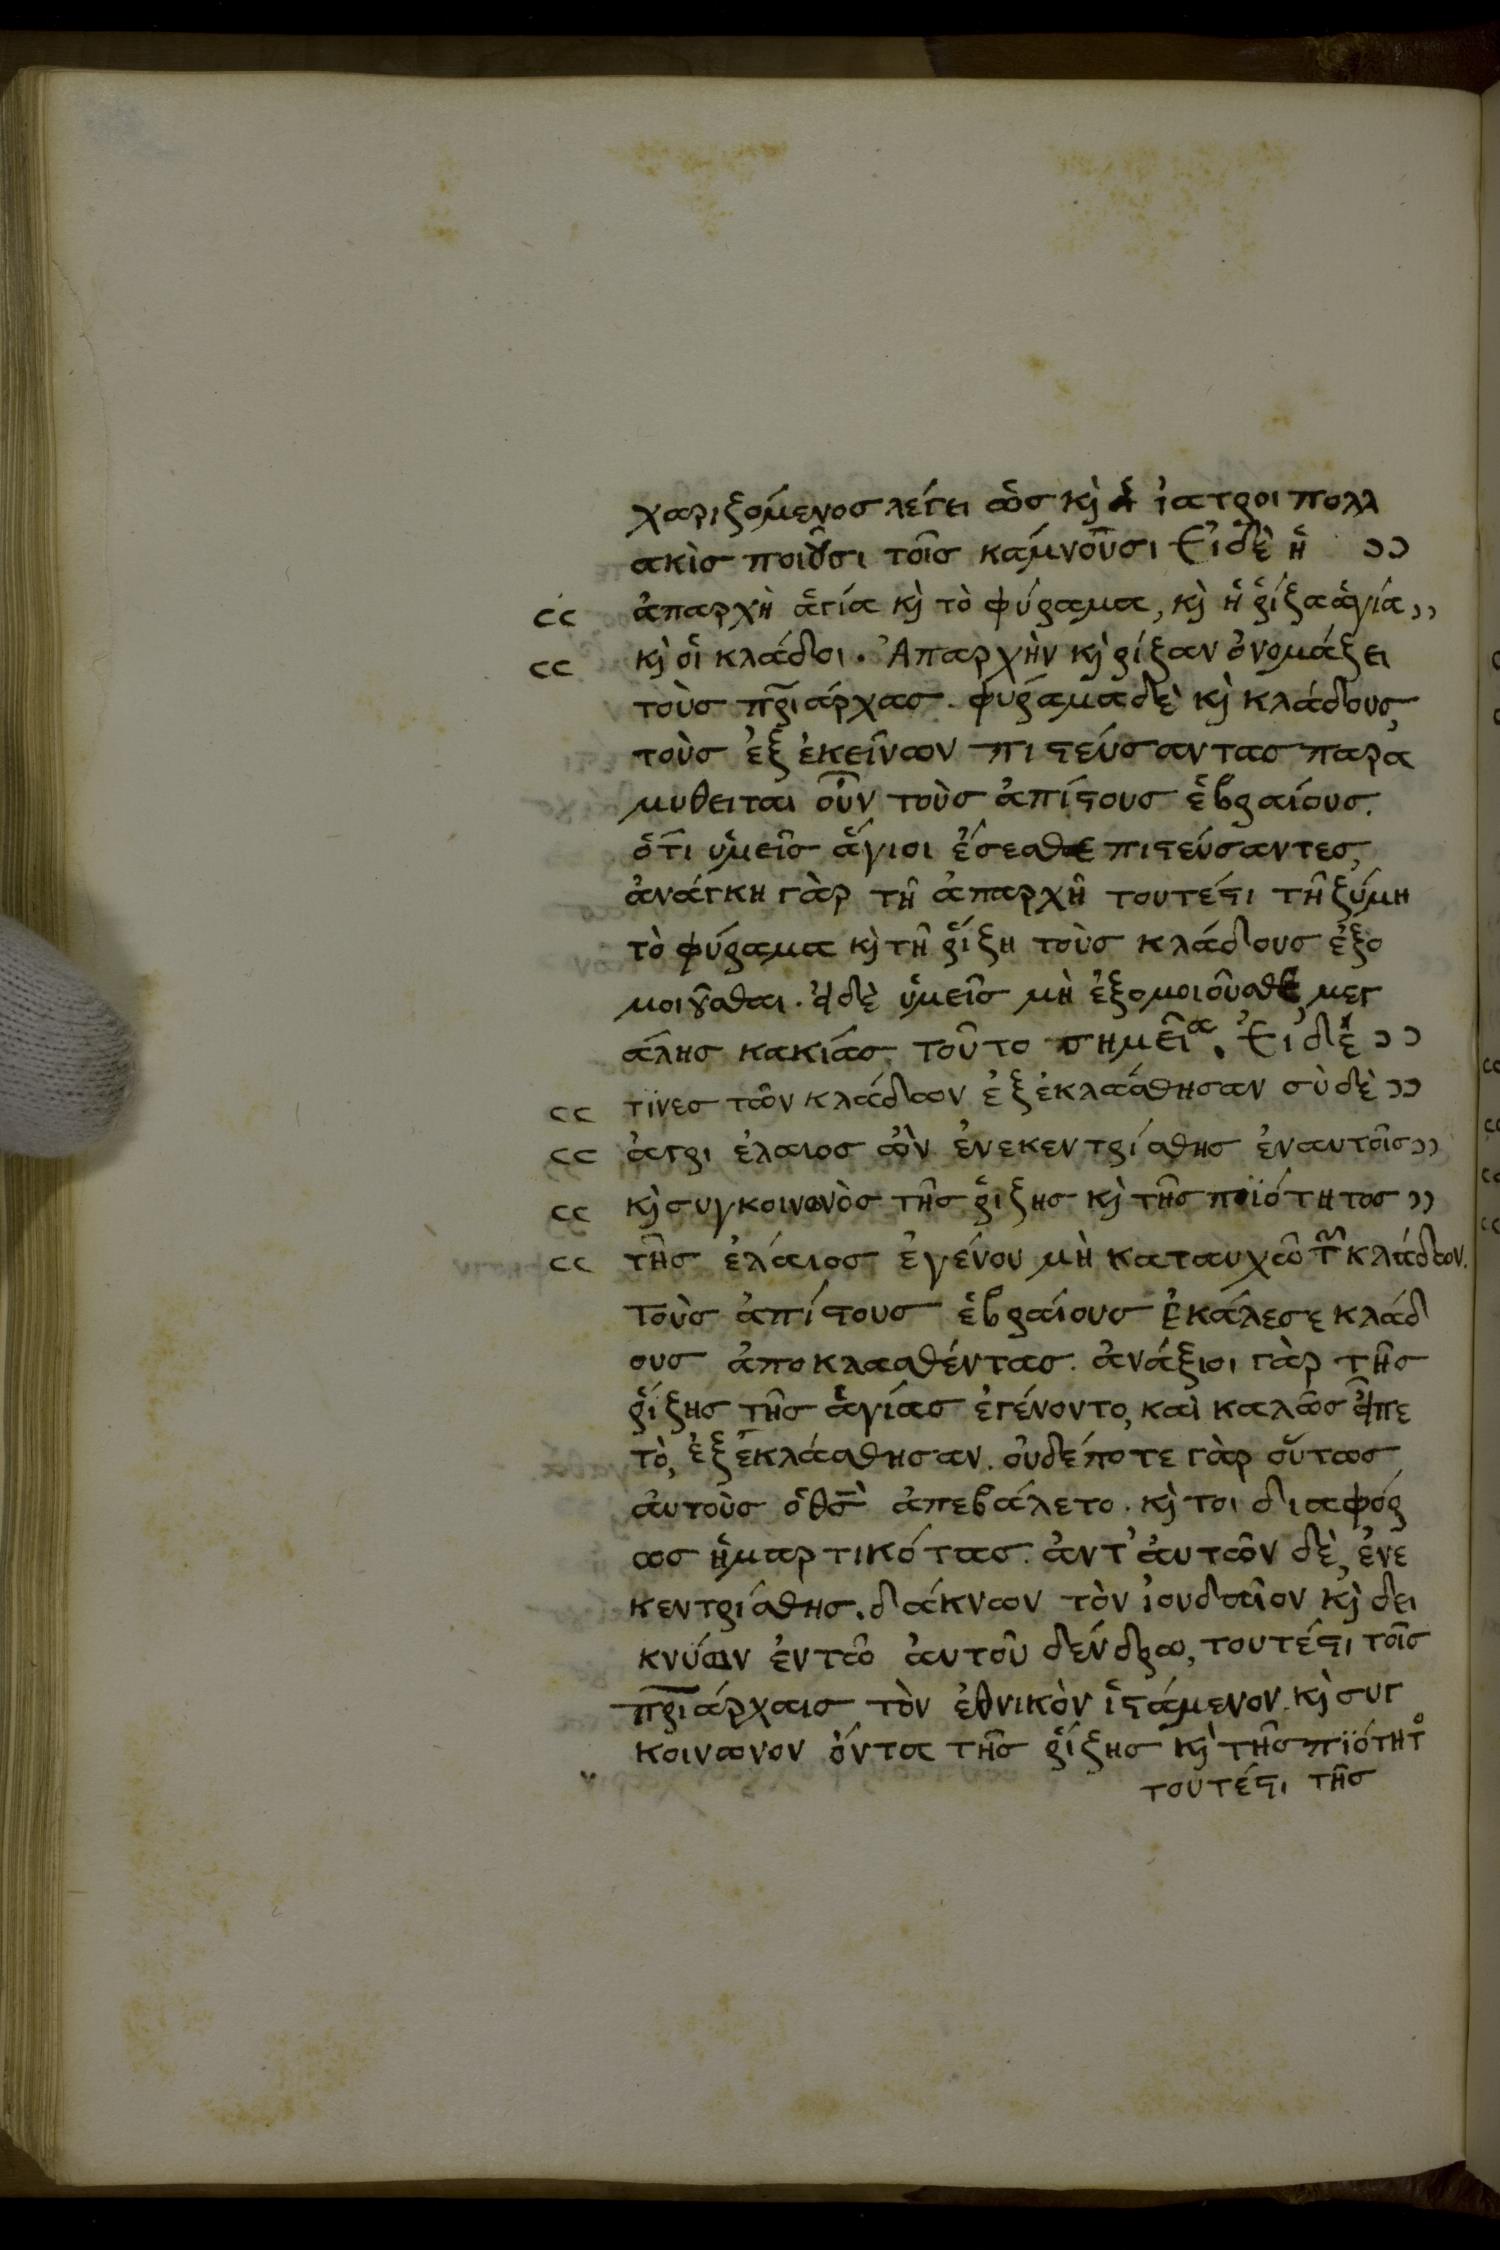 χαριζόμενος λέγει ὣς κὶ ἁ ἰατροι πολλ
ακὶς ποιοῦσι τοῖς κάμνοῦσι Εἰδὲ ἡ ››
‹‹ ἀπαρχὴ ἁγία κὶ τὸ φύραμα, κὶ ἡ ῥίζα ἁγία ››
‹‹ κὶ οἱ κλάδοι. Ἀπαρχὴν κὶ ρίζαν ὀνομάζει
τοὺς πρ̅ιάρχας. φύραμα δὲ κὶ κλάδους,
τοὺς ἐξ ἐκεῖνων πιϛεύσαντας παρα
μυθειται οὖν τοὺς ἀπίϛους ἑβραίους.
ὅτι ὑμεῖς ἅγιοι ἔσεσθε πιϛεύσαντες,
ἀνάγκη γὰρ τῆ ἀπαρχῆ τουτέϛι τῆ ζύμη
τὸ φύραμα κὶ τῆ ῥίζη τοὺς κλάδους ἐξο
μοιοῦσθαι. ἠδὲ ὑμεῖς μὴ ἐξομοιοῦσθε, μεγ
άλης κακιάς τοῦτο σημεῖα. Εἰδὲ ››
‹‹ τϊνες τῶν κλάδων ἐξεκλάσθησαν σὺ δὲ ››
‹‹ ἀγρι ἐλαιος ὢν ἐνεκεντρίσθης ἐναυτοῖς ››
‹‹ κὶ συγκοινωνὸς τῆς ῥίζης κὶ τῆς πϊότητος ››
‹‹ τῆς ἐλάιος ἐγένου μὴ καταυχῶ τ͂ κλάδων.
τοὺς ἀπίϛους ἑβραίους ἐκάλεσε κλάδ
ους ἀποκλασθέντας. ἀνάξιοι γὰρ τῆς
ῥίζης τῆς ἁγίας ἐγένοντο, καὶ καλῶς εἶπε
τὸ, ἐξεκλάσθησαν. οὐδέποτε γὰρ οὕτως
ἀυτοὺς ὁ θσ̅ ἀπεβάλετο. κὶ τοι διαφόρ
ως ἡμαρτικότας. ἀντ' ἀυτῶν δὲ, ἐνε
κεντρίσθης. δάκνων τὸν ἰουδαῖον κὶ δει
κνύων ἐν τῶ ἀυτοῦ δένδρω, τουτέϛι τοῖς
πρ̅ιάρχαις τὸν ἐθνικὸν ἱϛάμενον. κὶ συγ
κοινωνον ὄντα τῆς ῥίζης κὶ τῆς πϊότητο
τουτέϛι τῆς